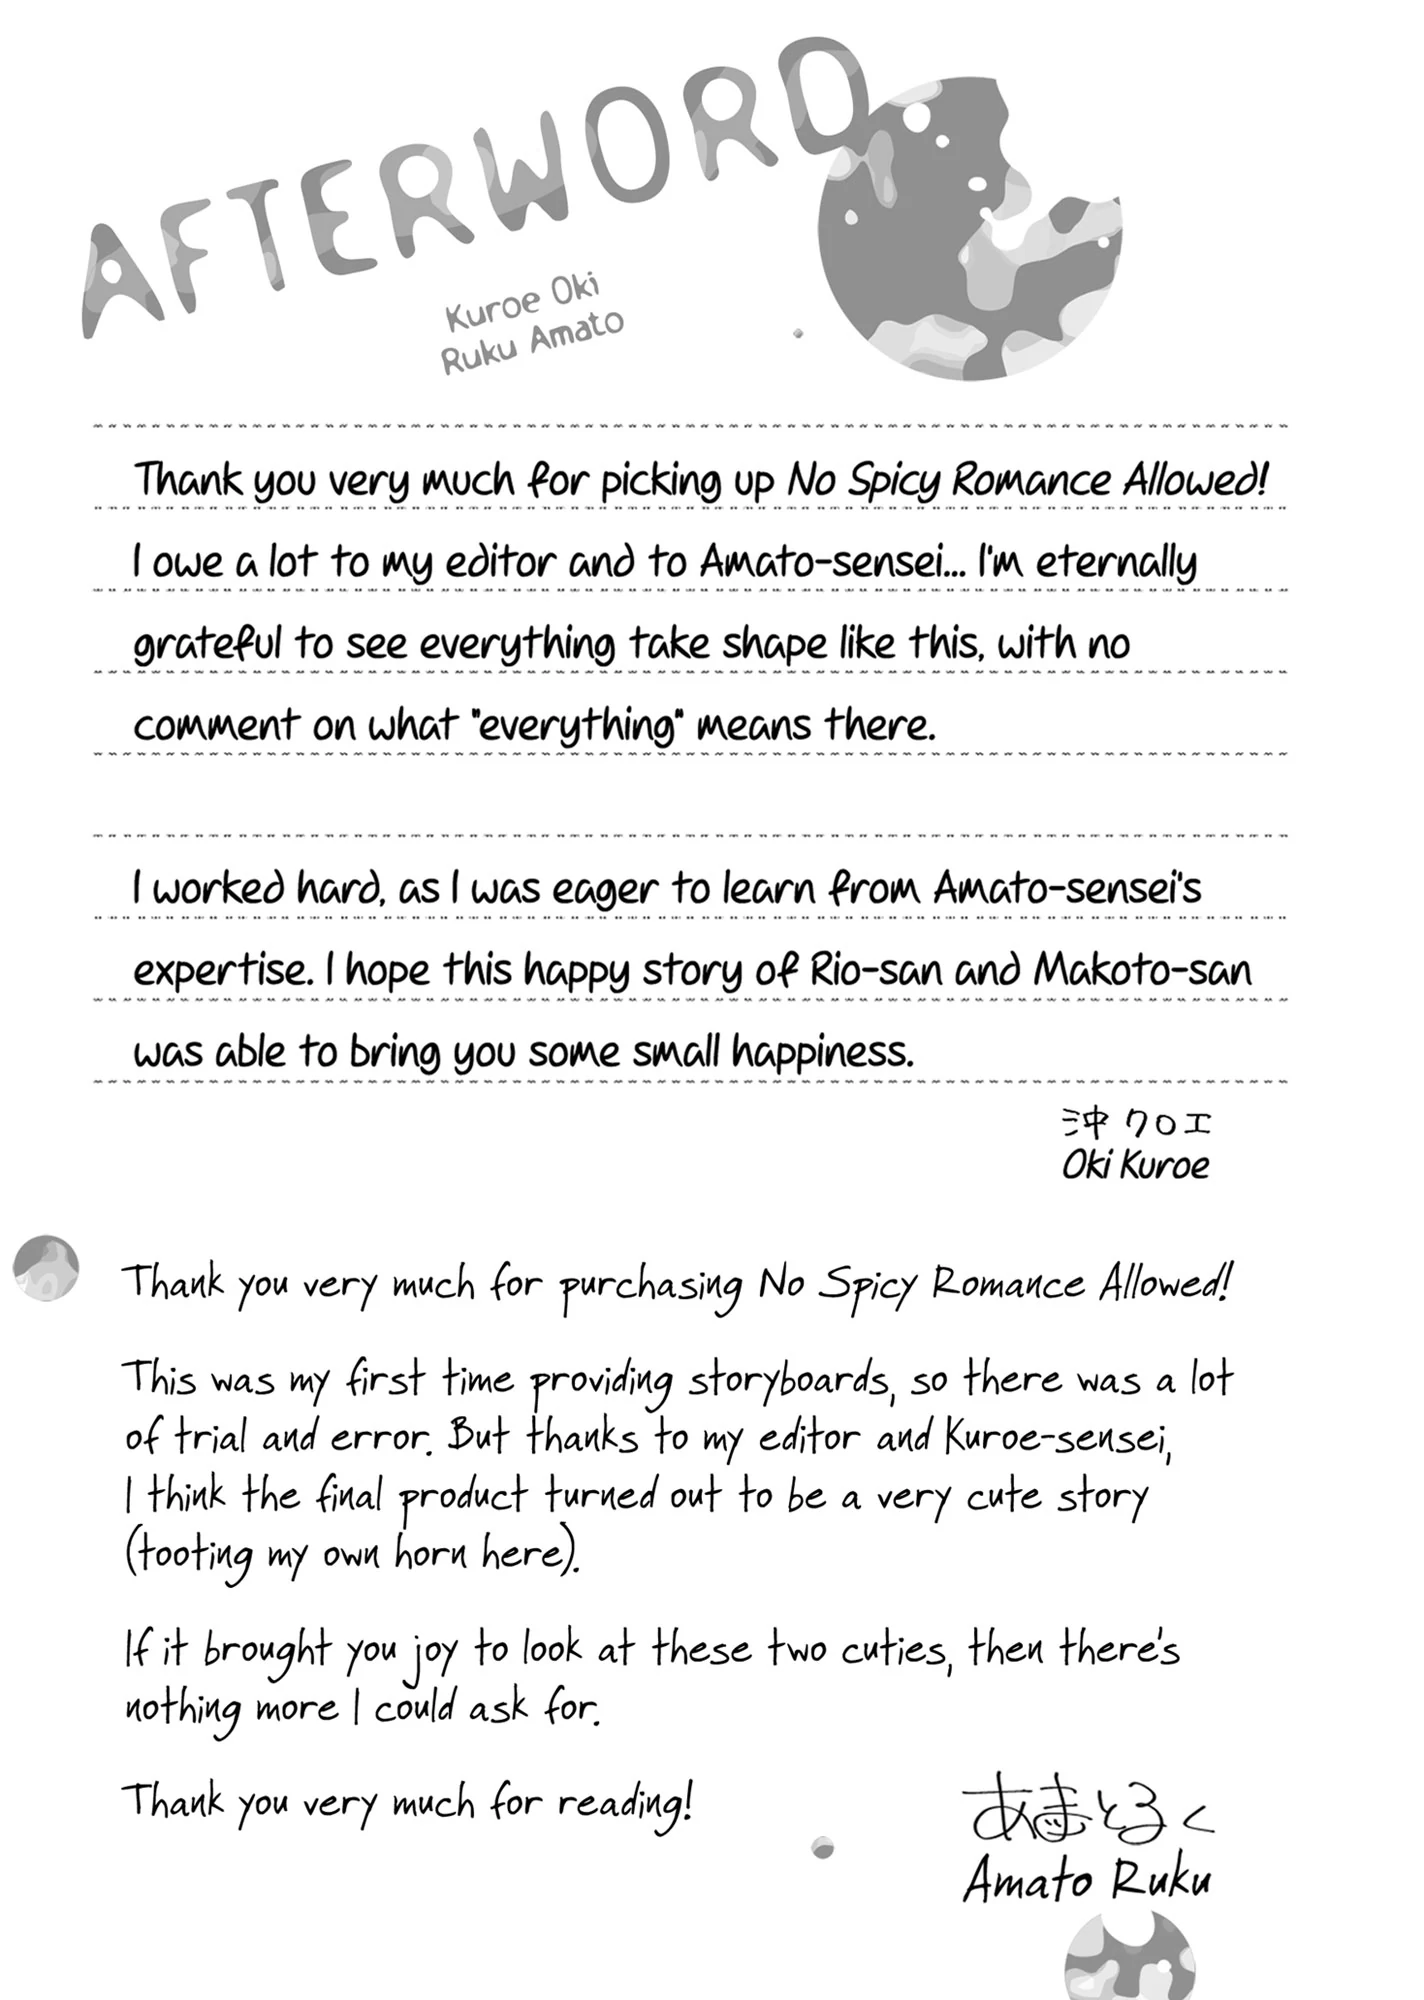 AFTERWORD
Kuroe Oki
Ruku Amato
Thank you very much for picking up No Spicy Romance Allowed!
I owe a lot to my editor and to Amato-sensei... I'm eternally
grateful to see everything take shape like this, with no
comment on what "everything" means there.
I worked hard, as I was eager to learn from Amato-sensei's
expertise. I hope this happy story of Rio-san and Makoto-san
was able to bring you some small happiness.
沖 クロエ
Oki Kuroe
Thank you very much for purchasing No Spicy Romance Allowed!
This was my first time providing storyboards, so there was a lot
of trial and error. But thanks to my editor and Kuroe-sensei,
I think the final product turned out to be a very cute story
(tooting my own horn here).
If it brought you joy to look at these two cuties, then there's
nothing more I could ask for.
Thank you very much for reading!
あまとるく
Amato Ruku